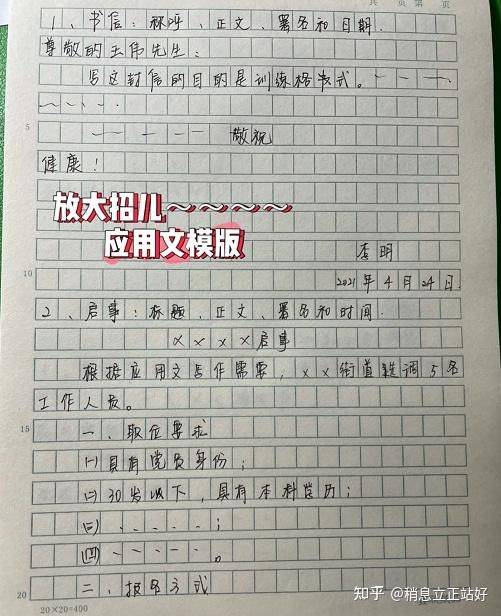 共 页 第 页
1、书信：称呼、正文、署名和日期.
尊敬的王伟先生：
写这封信的目的是训练格式。
敬祝
5
健康！
放大招儿～～～～
应用文模版
李明
10
2021年4月24日.
2、启事：标题、正文、署名和时间.
××××启事
根据应用文写作需要，××街道选调5名
工作人员。
15
一、职位要求
(一)具有党员身份；
(二)30岁以下，具有本科学历；
(三)、、、、、；
(四)、、、、、。
20
二、报名方式
20×20=400
知乎 @稍息立正站好